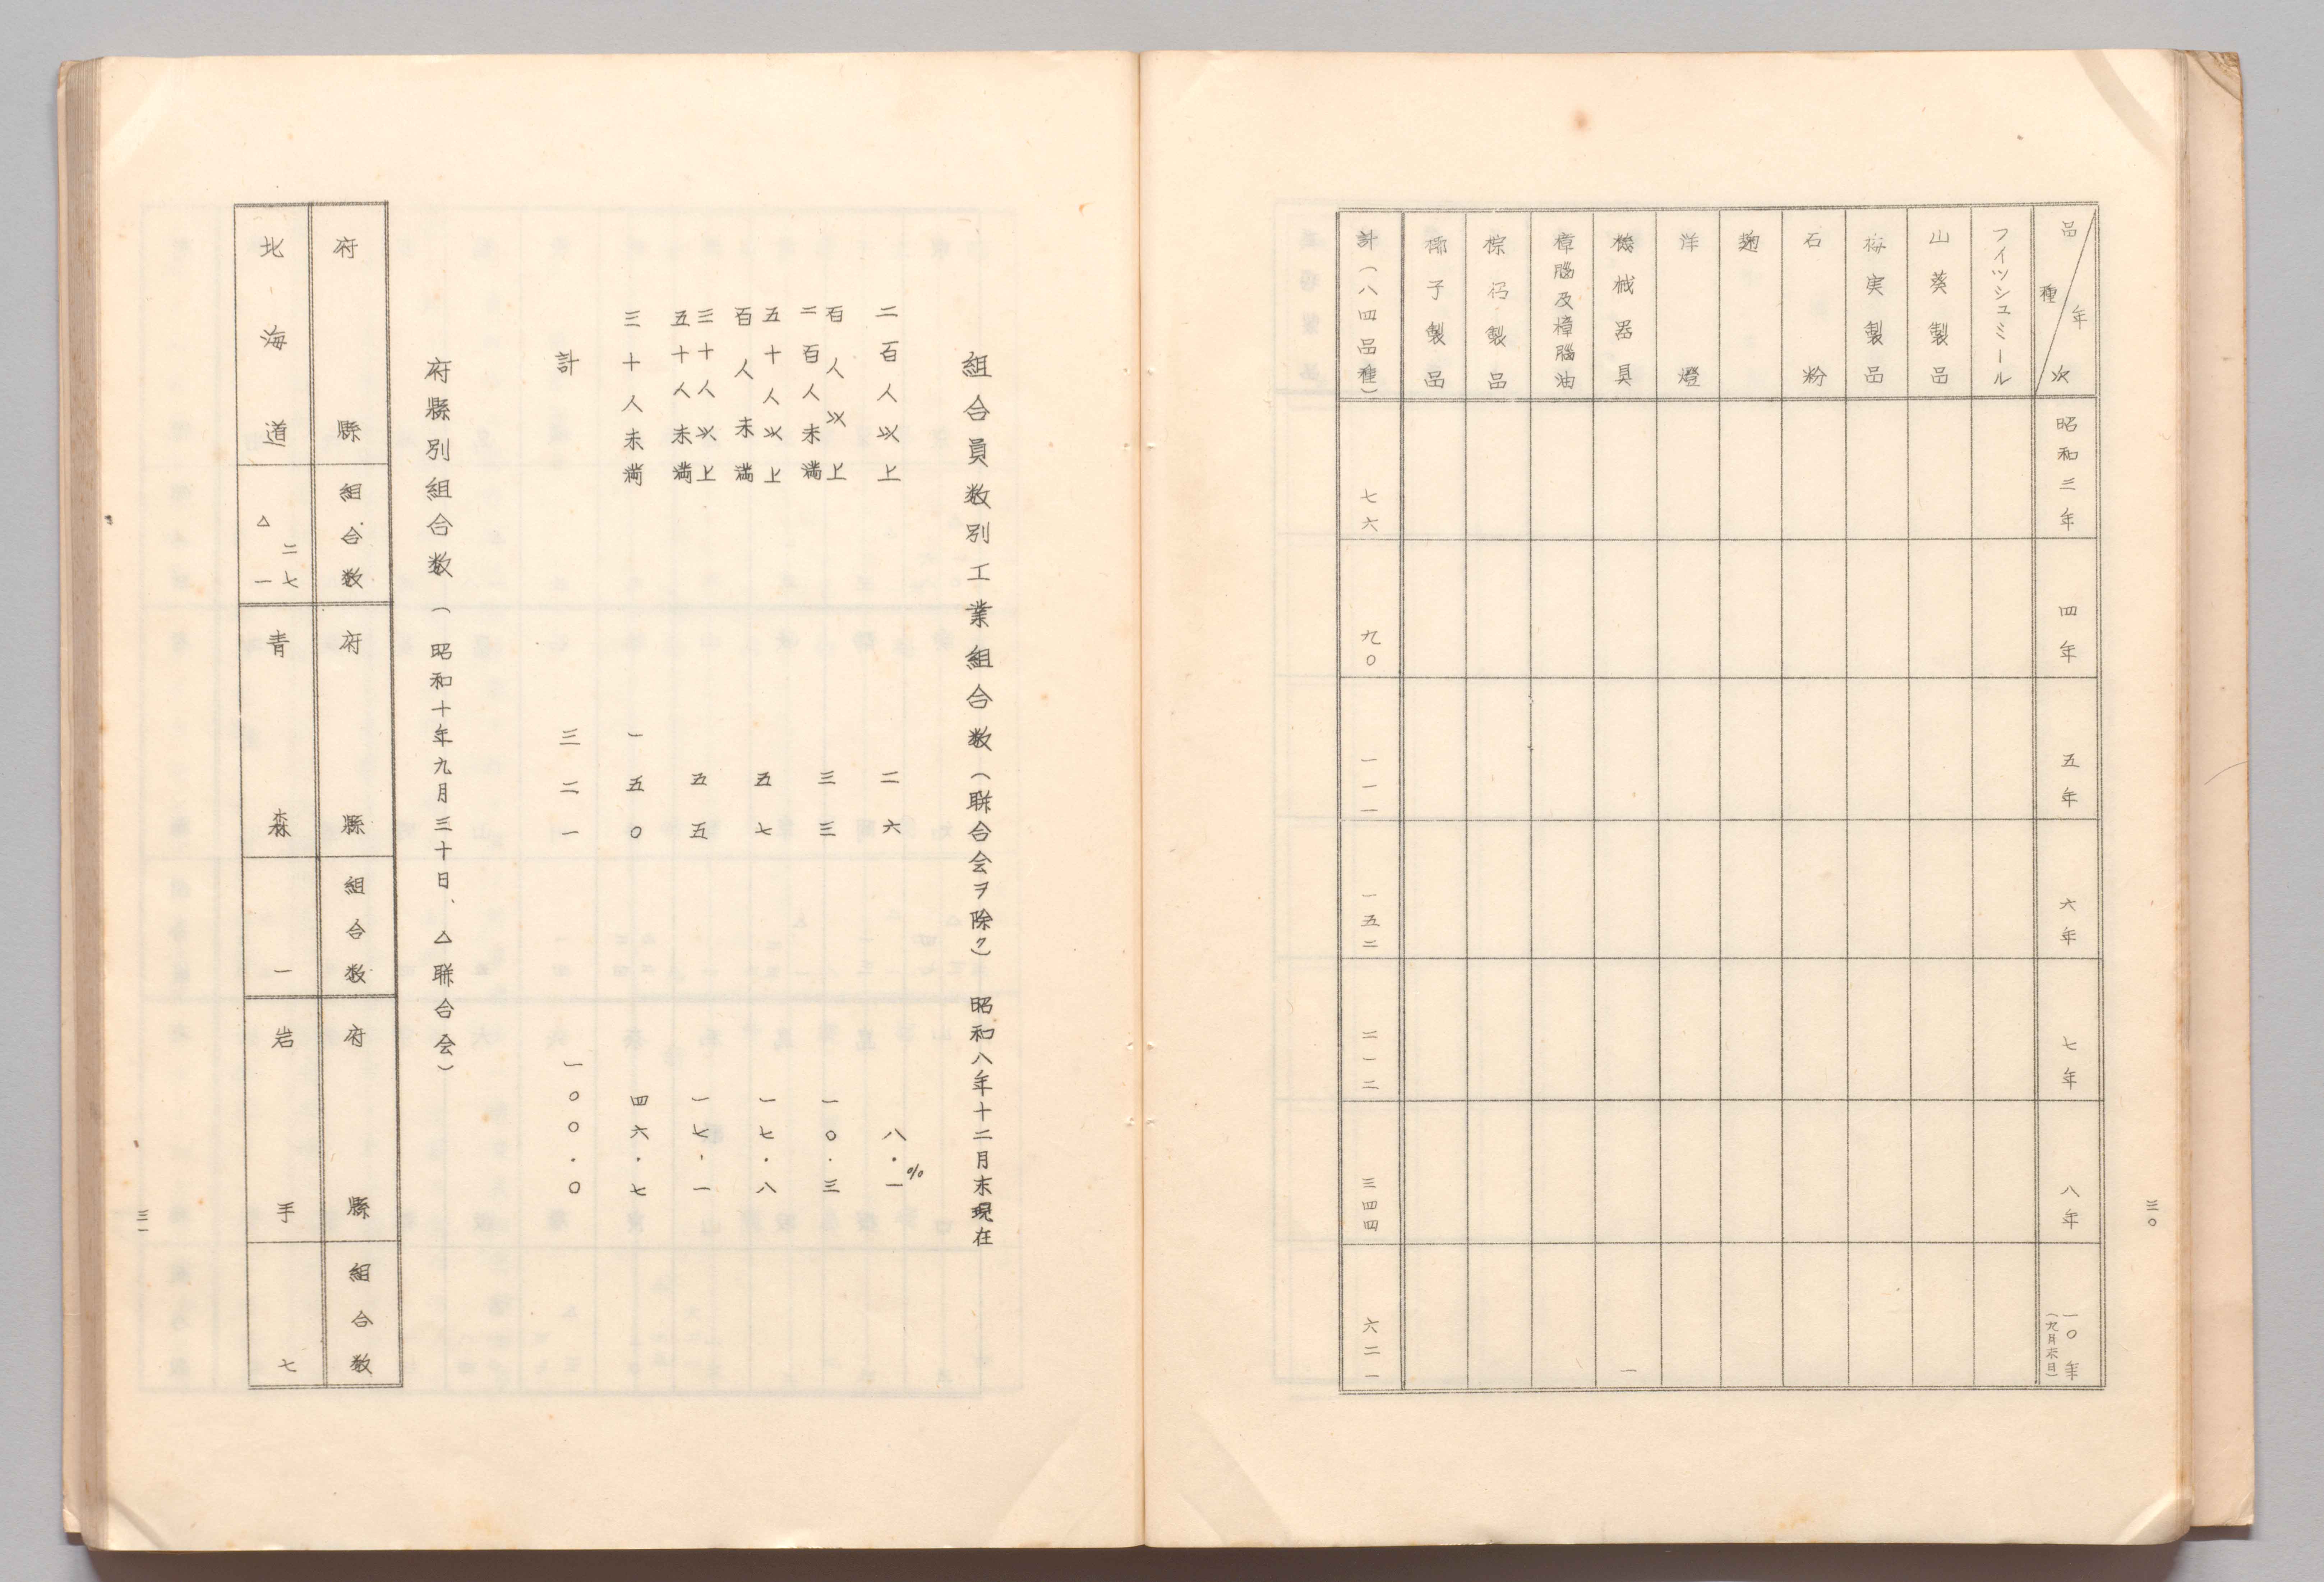 三〇
品種 年次
昭和三年
四年
五年
六年
七年
八年
一〇年(九月末日)
フイツシュミール
山葵製品
梅実製品
石粉
麹
洋燈
機械器具 一
樟脳及樟脳油
製品
椰子製品
計(八四品種) 七六 九〇 一一一 一五二 二一二 三四四 六二一
組合員数別工業組合数(聯合会ヲ除ク) 昭和八年十二月末現在
二百人以上 二六 八・一%
百人以上二百人未満 三三 一〇・三
五十人以上百人未満 五七 一七・八
三十人以上五十人未満 五五 一七・一
三十人未満 一五〇 四六・七
計 三二一 一〇〇・〇
府縣別組合数(昭和十年九月三十日、△聯合会)
府縣 組合数 府縣 組合数 府縣 組合数
北海道 二七 △一 青森 一 岩手 七
三一